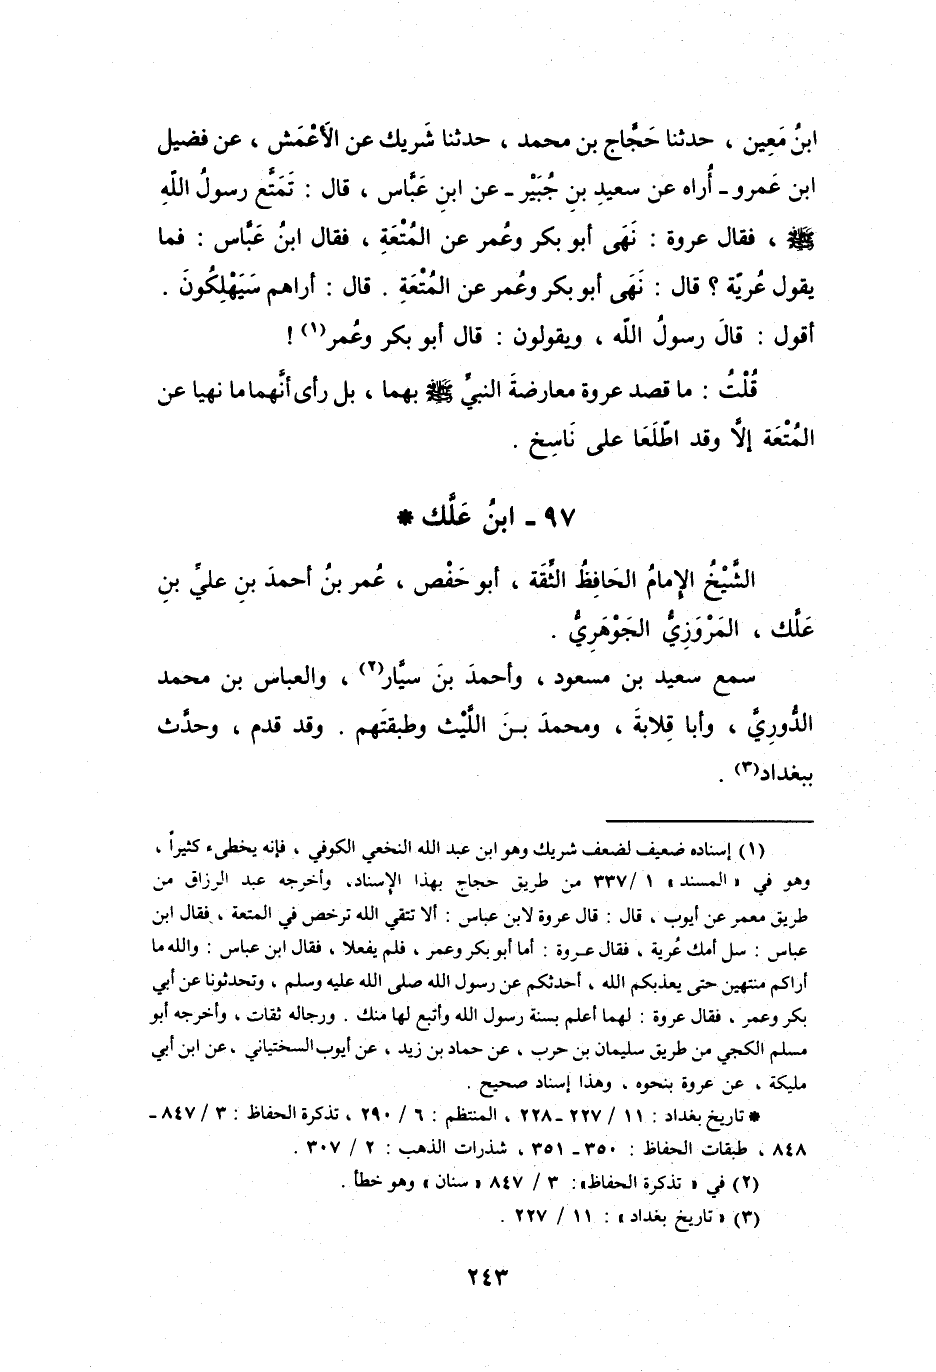 ابنُ مَعِين ، حدثنا حَجَّاج بن محمد ، حدثنا شَريك عن الأَعْمَش ، عن فضيل
ابن عَمرو ـ أُراه عن سعيدِ بنِ جُبَيْر ـ عن ابنِ عَبَّاس ، قال : تَمَتَّع رسولُ اللّهِ
ﷺ ، فقال عروة : نَهَى أبو بكر وعُمر عن المُتْعَةِ ، فقال ابنُ عَبَّاس : فما
يقول عُريّة ؟ قال : نَهَى أبو بكر وعُمر عن المُتْعَةِ . قال : أراهم سَيَهْلِكُونَ .
أقول : قالَ رسولُ اللّه ، ويقولون : قال أبو بكر وعُمر(١) !
قُلْتُ : ما قصد عروة معارضةَ النبيِّ ﷺ بهما ، بل رأى أنَّهما ما نهيا عن
المُتْعَة إلَّا وقد اطّلَعَا على نَاسِخ .
٩٧ ـ ابنُ عَلَّك *
الشَّيْخُ الإمامُ الحَافِظُ الثِّقَة ، أبو حَفْص ، عُمر بنُ أحمدَ بنِ عليِّ بنِ
عَلَّك ، المَرْوَزِيُّ الجَوْهَرِيُّ .
سمع سعيد بن مسعود ، وأحمدَ بنَ سيَّار(٢) ، والعباس بن محمد
الدُّورِيَّ ، وأبا قِلابةَ ، ومحمدَ بـنَ اللَّيْث وطبقتَهم . وقد قدم ، وحدَّث
ببغداد(٣) .
(١) إسناده ضعيف لضعف شريك وهو ابن عبد الله النخعي الكوفي ، فإنه يخطىء كثيراً ،
وهو في « المسند » ١ /٣٣٧ من طريق حجاج بهذا الإسناد، وأخرجه عبد الرزاق من
طريق معمر عن أيوب ، قال : قال عروة لابن عباس : ألا تتقي الله ترخص في المتعة ، فقال ابن
عباس : سل أمك عُرية ، فقال عـروة : أما أبو بكر وعمر ، فلم يفعلا ، فقال ابن عباس : والله ما
أراكم منتهين حتى يعذبكم الله ، أحدثكم عن رسول الله صلى الله عليه وسلم ، وتحدثونا عن أبي
بكر وعمر ، فقال عروة : لهما أعلم بسنة رسول الله وأتبع لها منك . ورجاله ثقات ، وأخرجه أبو
مسلم الكجي من طريق سليمان بن حرب ، عن حماد بن زيد ، عن أيوب السختياني ، عن ابن أبي
مليكة ، عن عروة بنحوه ، وهذا إسناد صحيح .
* تاريخ بغداد : ١١ / ٢٢٧ ـ ٢٢٨ ، المنتظم : ٦ / ٢٩٠ ، تذكرة الحفاظ : ٣ / ٨٤٧ ـ
٨٤٨ ، طبقات الحفاظ : ٣٥٠ ـ ٣٥١ ، شذرات الذهب : ٢ / ٣٠٧ .
(٢) في « تذكرة الحفاظ»: ٣ / ٨٤٧ « سنان » وهو خطأ .
(٣) « تاريخ بغداد » : ١١ / ٢٢٧ .
٢٤٣